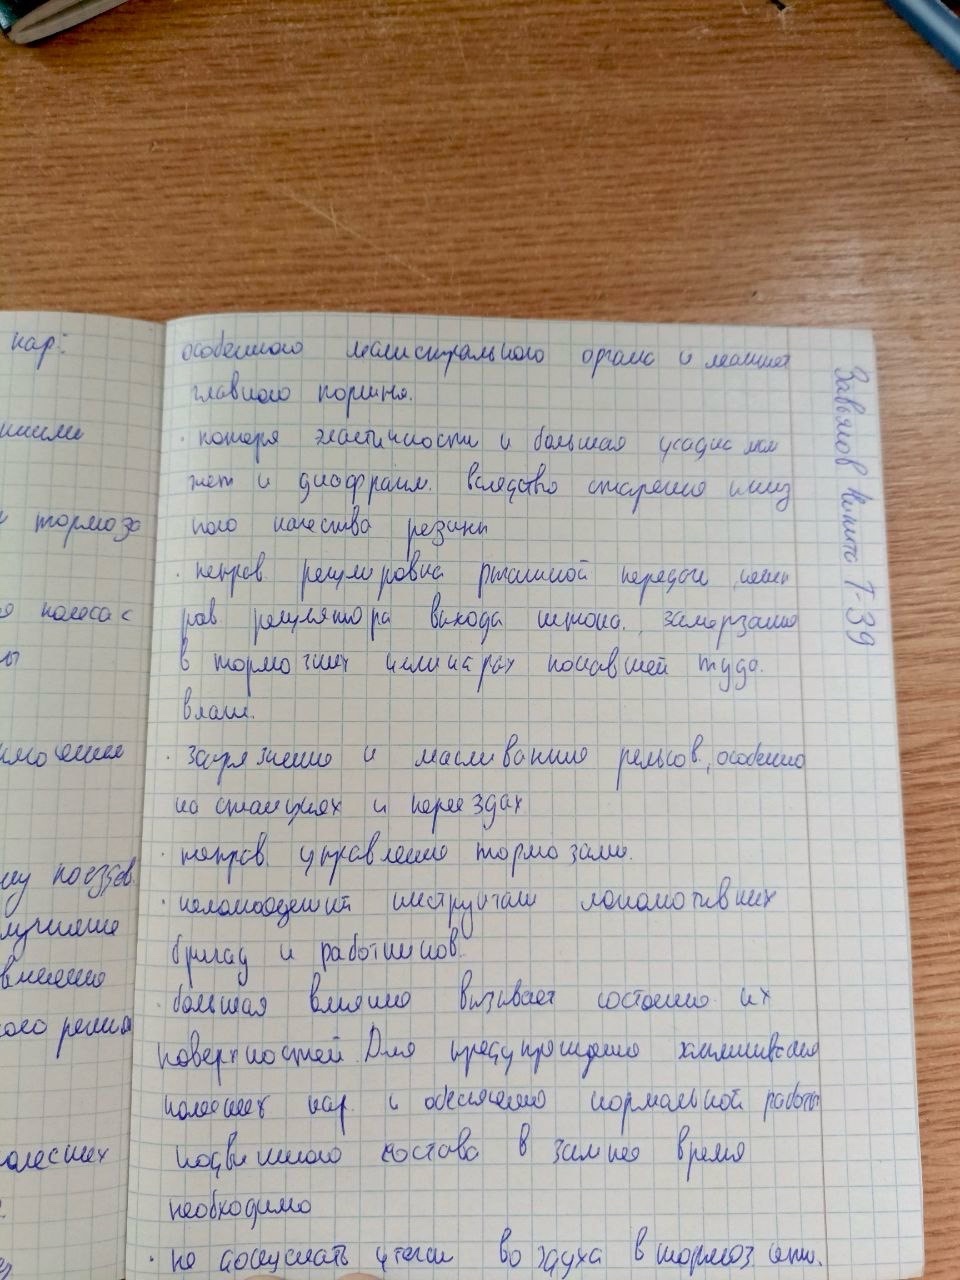 кар:
шими
тормоза
колесах
ну поездов
лучшение
олесных
особенного магистрального органа и манжет
главного поршня.
· потеря эластичности и большая усадка ман
жет и диафрагм. вследство старения и низ
кого качества резины
· неправ регулировка рычажной передачи, неис
рав регулятора выхода штока. замерзание
в тормозных цилиндрах попавшей туда.
влаги.
· загрязнение и масливание рельсов, особенно
на станциях и переездах
· неправ. управление тормозами.
· инструктаж локомотивных
бригад и работников.
· большая влияние вызывает состояние их
поверхностей. Для предупреждения
колесных пар. и обеспечению нормальной работы
подвижного состава в зимнее время
необходимо
· не допускать утечки воздуха в тормоз. сети.
Завьялов Никита Т-39